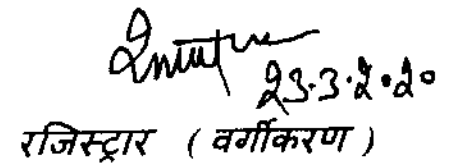 23.3.2020
रजिस्ट्रार ( वर्गीकरण )